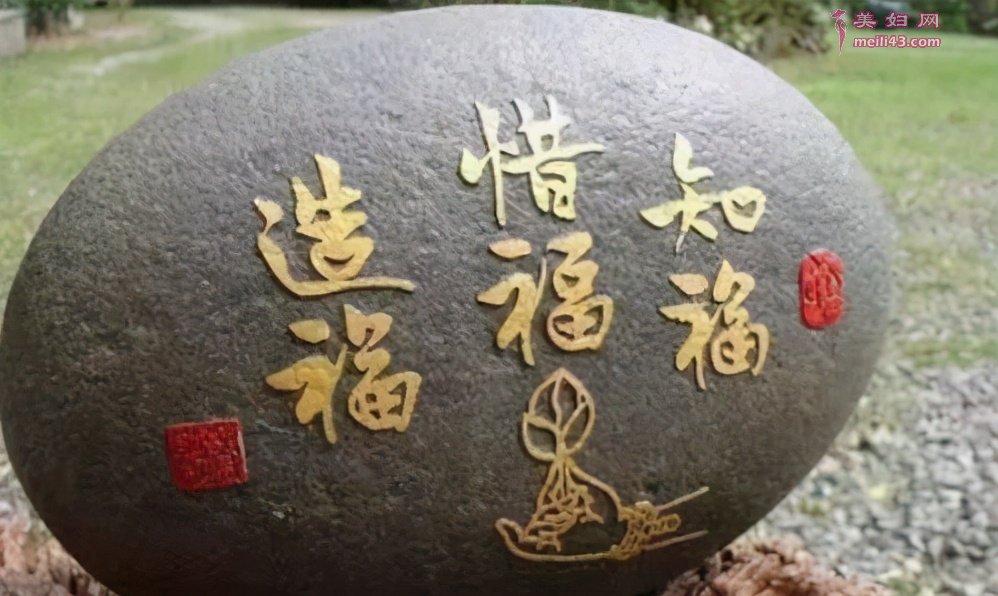 知福
惜福
造福
美妇网
meili43.com